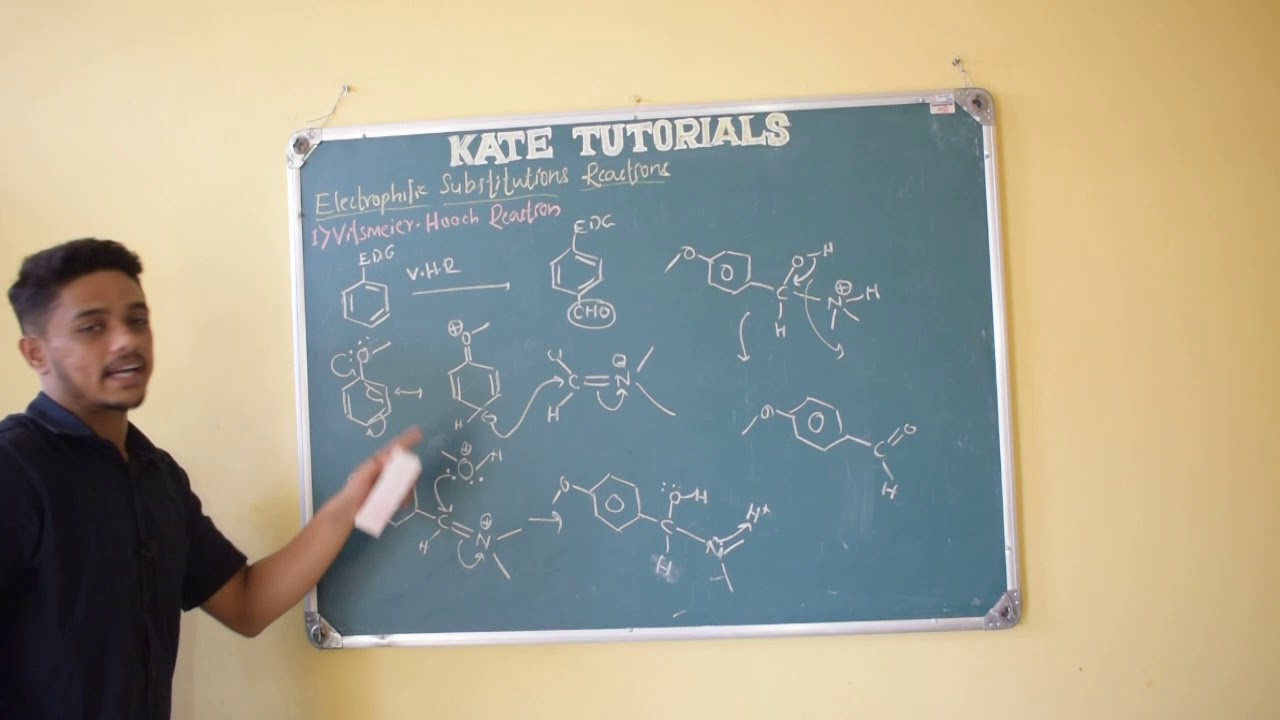 KATE TUTORIALS
Electrophilic Substitutions Reactions
1) Vilsmeier-Haack Reaction
EDG
V.H.R
EDG
CHO
O H
C
N H
H
O
O
Cl
C N
H
H
O
O
C
H
O H
C N
H
O
O-H
C
H
N
H+